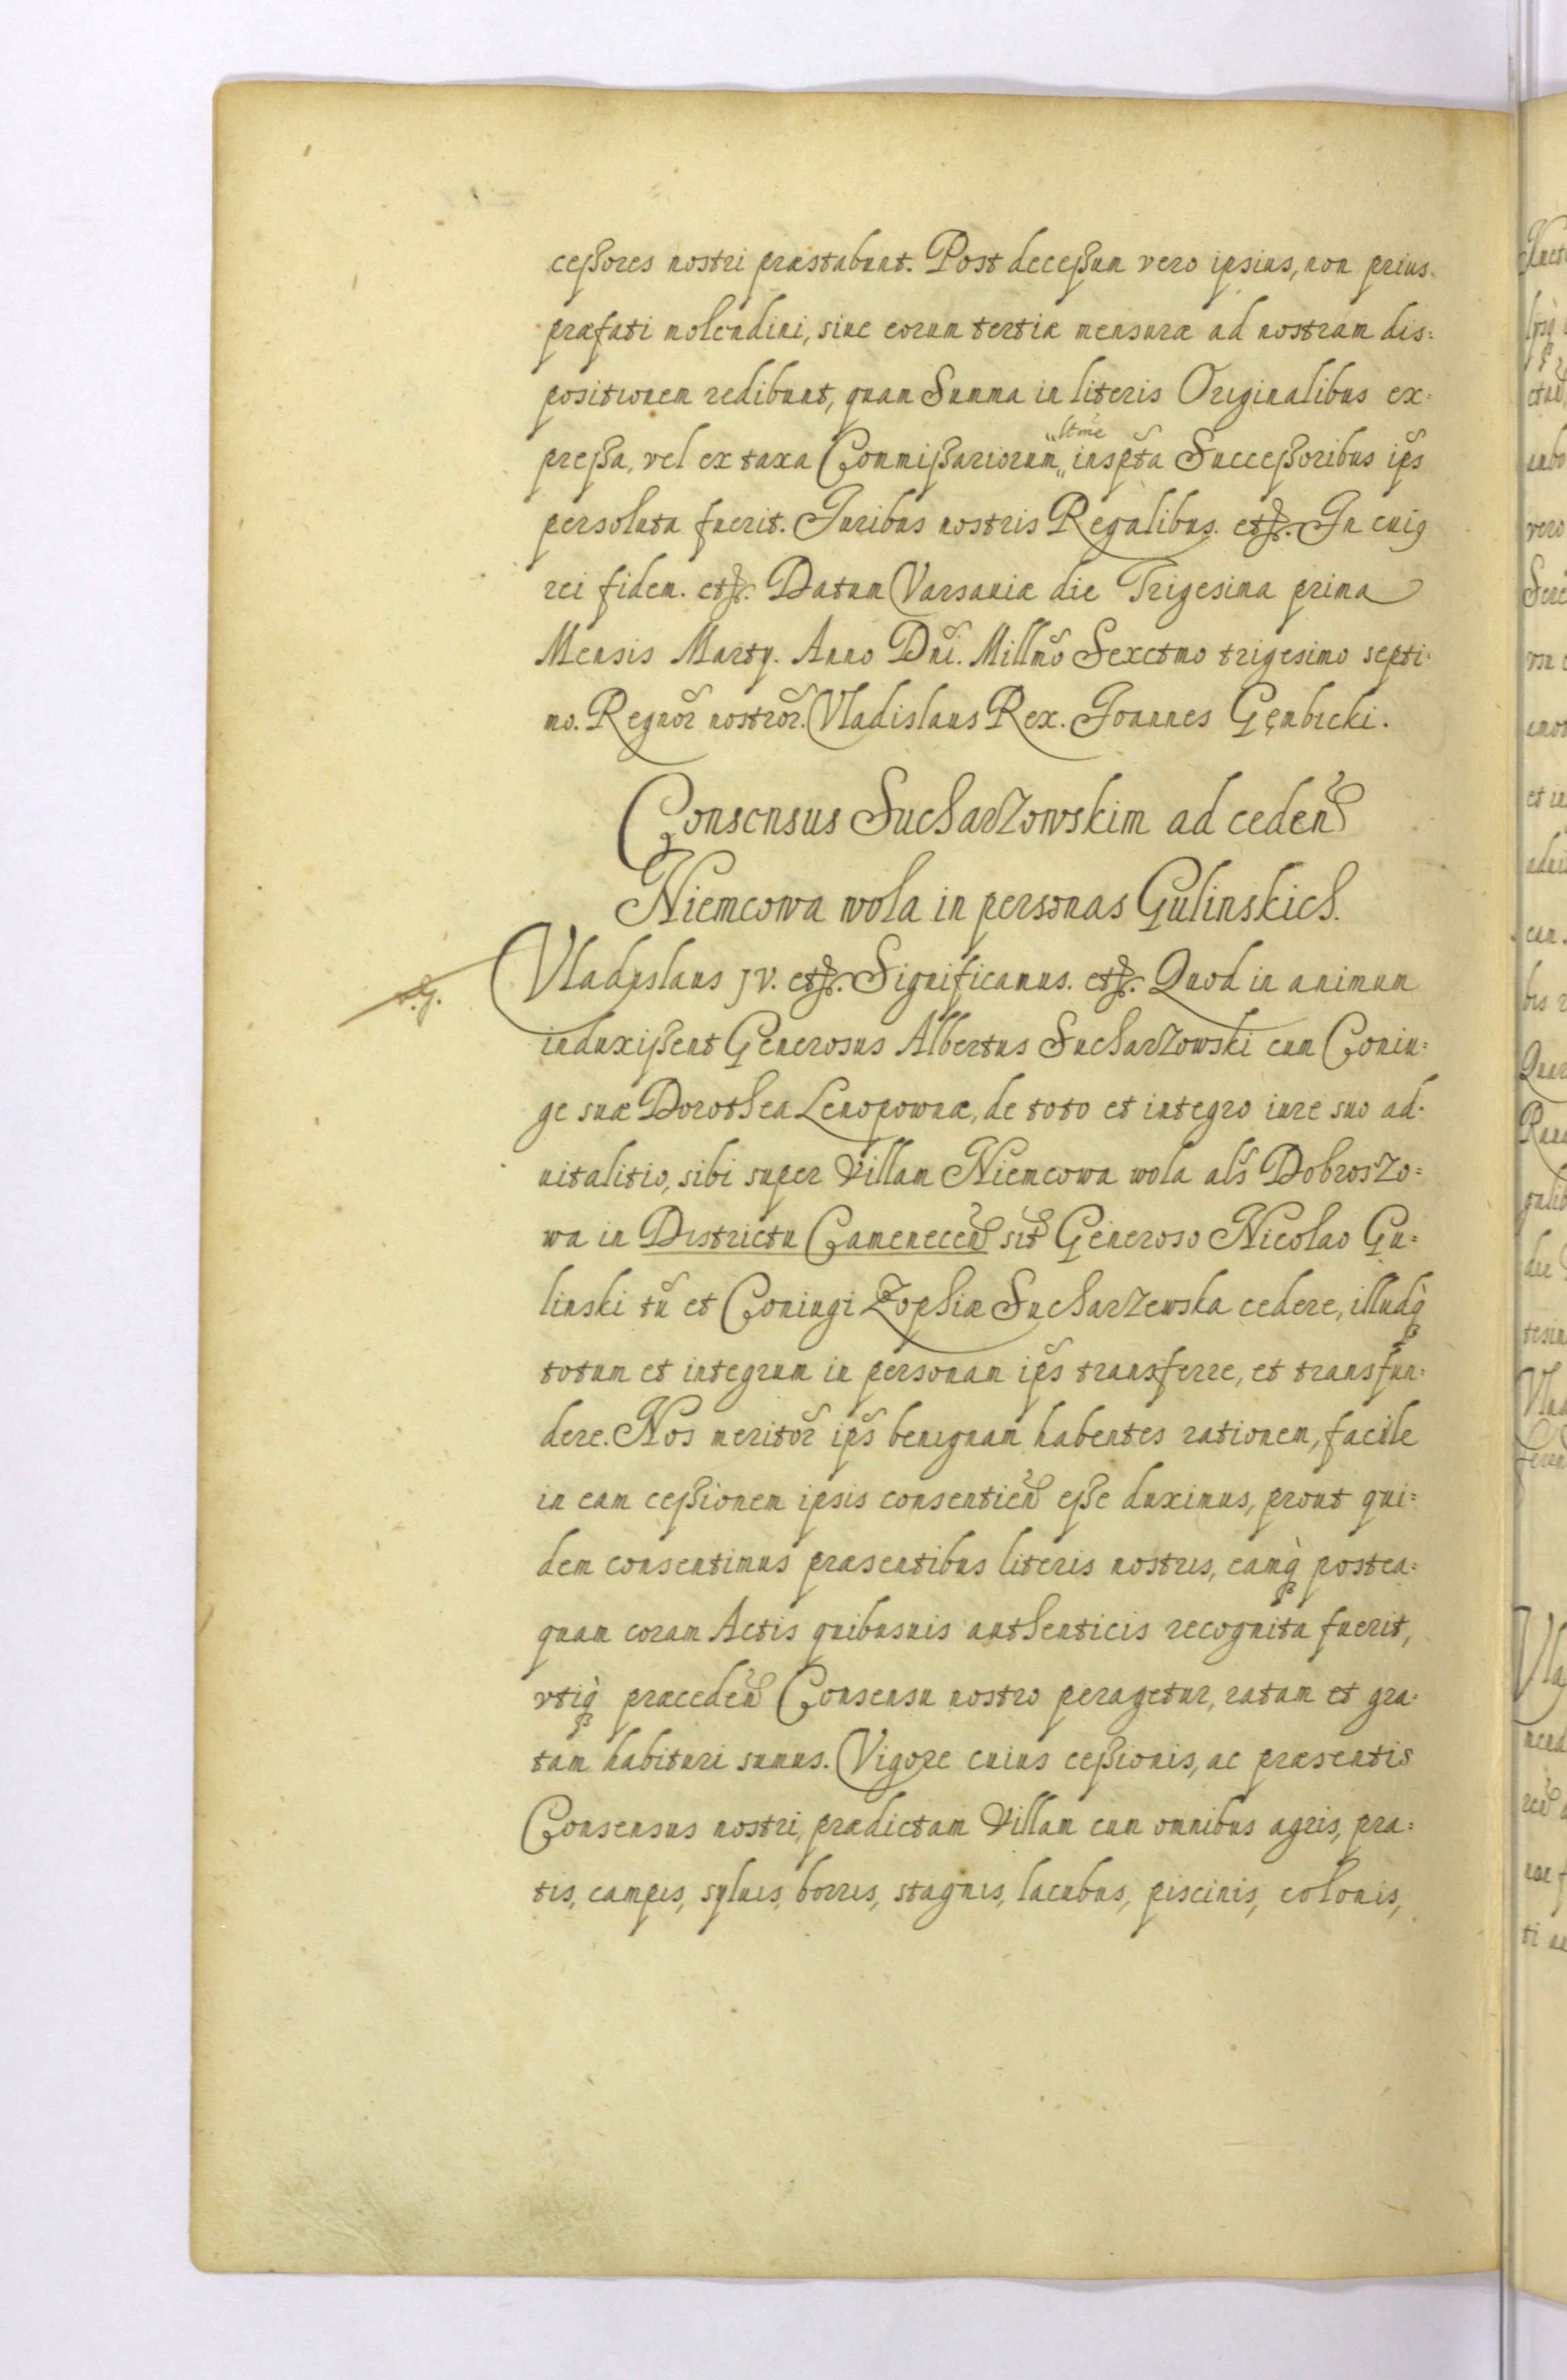 ceßores nostri præstabunt. Post deceßum vero ipsius, non prius
præfati molendini, siue eorum tertiæ mensuræ ad nostram dis=
positionem redibunt, quam Summa in literis Originalibus ex=
preßa, vel ex taxa Commißariorum inspta Succeßoribus ips
persoluta fuerit. Juribus nostris Regalibus. etc. In cuig
rei fidem. etc. Datum Varsauiæ die Trigesima prima
Mensis Martij. Anno Dni. Millmo Sexctmo trigesimo septi=
mo. Regnor nostror. Vladislaus Rex. Joannes Gęmbicki.
Consensus Sucharzowskim ad ceden
Niemcowa wola in personas Gulinskich.
Vladyslaus IV. etc. Significamus. etc. Quod in animum
induxißent Generosus Albertus Sucharzowski cum Coniu=
ge sua Dorothea Lenopownæ, de toto et integro iure suo ad=
uitalitio, sibi super Villam Niemcowa wola als Dobroszo=
wa in Districtu Camenecen sit Generoso Nicolao Gu=
linski tu et Coniugi Zophiæ Sucharzewska cedere, illudq
totum et integrum in personam ips transferre, et transfun=
dere. Nos meritor ips benignam habentes rationem, facile
in eam ceßionem ipsis consentien eße duximus, prout qui=
dem consentimus præsentibus literis nostris, eamq postea=
quam coram Actis quibusuis authenticis recognita fuerit,
vtiq præceden Consensu nostro peragetur, ratam et gra=
tam habituri sumus. Vigore cuius ceßionis, ac præsentis
Consensus nostri, prædictam Villam cum omnibus agris, pra=
tis, campis, syluis, borris, stagnis, lacubus, piscinis, colonis,